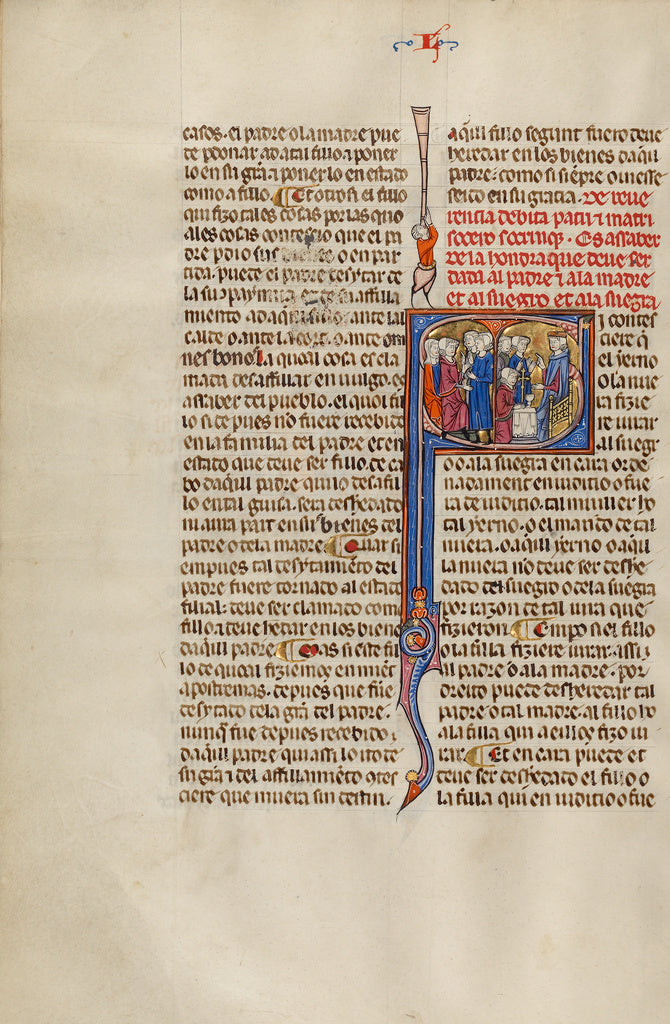 L
casos. el padre o la madre pue
de p̄donar ad atal fillo ⁊ poner
lo en su grā ⁊ ponerlo en estado
como a fillo. ¶ Et otrosi el fillo
qui fizo tales cosas por las qua
ales cosas contescio que el pa
dre p̄dio sus bienes o en par
tida. puede el padre desytar de
la su
miento ad aquel fillo. ante lal
calde o. ante la cort. o. ante om
nes bonos. la qual cosa es cla
mada desaffillar en vulgo. es
assaber del pueblo. el qual fi
lo si depues no fuere recebido
en la familia del padre et en
estado que deue ser fillo. de ca
bo daquel padre qui lo desafi
lo en tal guisa. sera desheredado
ni aura part en sus bienes del
padre o dela madre. ¶ Mas si
empues tal desytamiēto del
padre fuere tornado al estado
filial. deue ser clamado como
fillo ⁊ deue hedar en los bienes
daquel padre. ¶ Mas si este fil
lo de qual fiziemos enmiēt
apostremas. depues que fue
desytado dela grā del padre.
nunq̄ fue depues recebido.
daquel padre qui assi lo ito de
su grā ⁊ del affillamiēto ⁊ ntes
ciere que muera sin testin.
aquel fillo segunt fuero deue
heredar en los bienes daqu
padre. como si siēpre ouiesse
seido en su gracia. De reue
rencia debita patri ⁊ matri
socero socrinq̄. Es assaber
de la hondra que deue ser
dada al padre ⁊ ala madre
et al suegro et ala suegra.
i contes
ciere q̄
el yerno
o la nue
ra fizie
re iurar
al suegr
o o ala suegra en cara orde
nadament en iudicio o fue
ra de iudicio. tal muller ho
tal yerno. o el marido de tal
nuera. o aquel yerno o aqul
la nuera no deue ser deshe
dado del suegro o dela suegra
por razon de tal iura que
fizieron. ¶ Empo si el fillo
o la filla fiziere iurar. assi
al padre o ala madre. por
dreito puede desheredar tal
padre o tal madre. al fillo ho
ala filla qui a ellos fizo iu
rar. ¶ Et en cara puede et
deue ser deshedado el fillo o
la filla qui en iudicio o fue